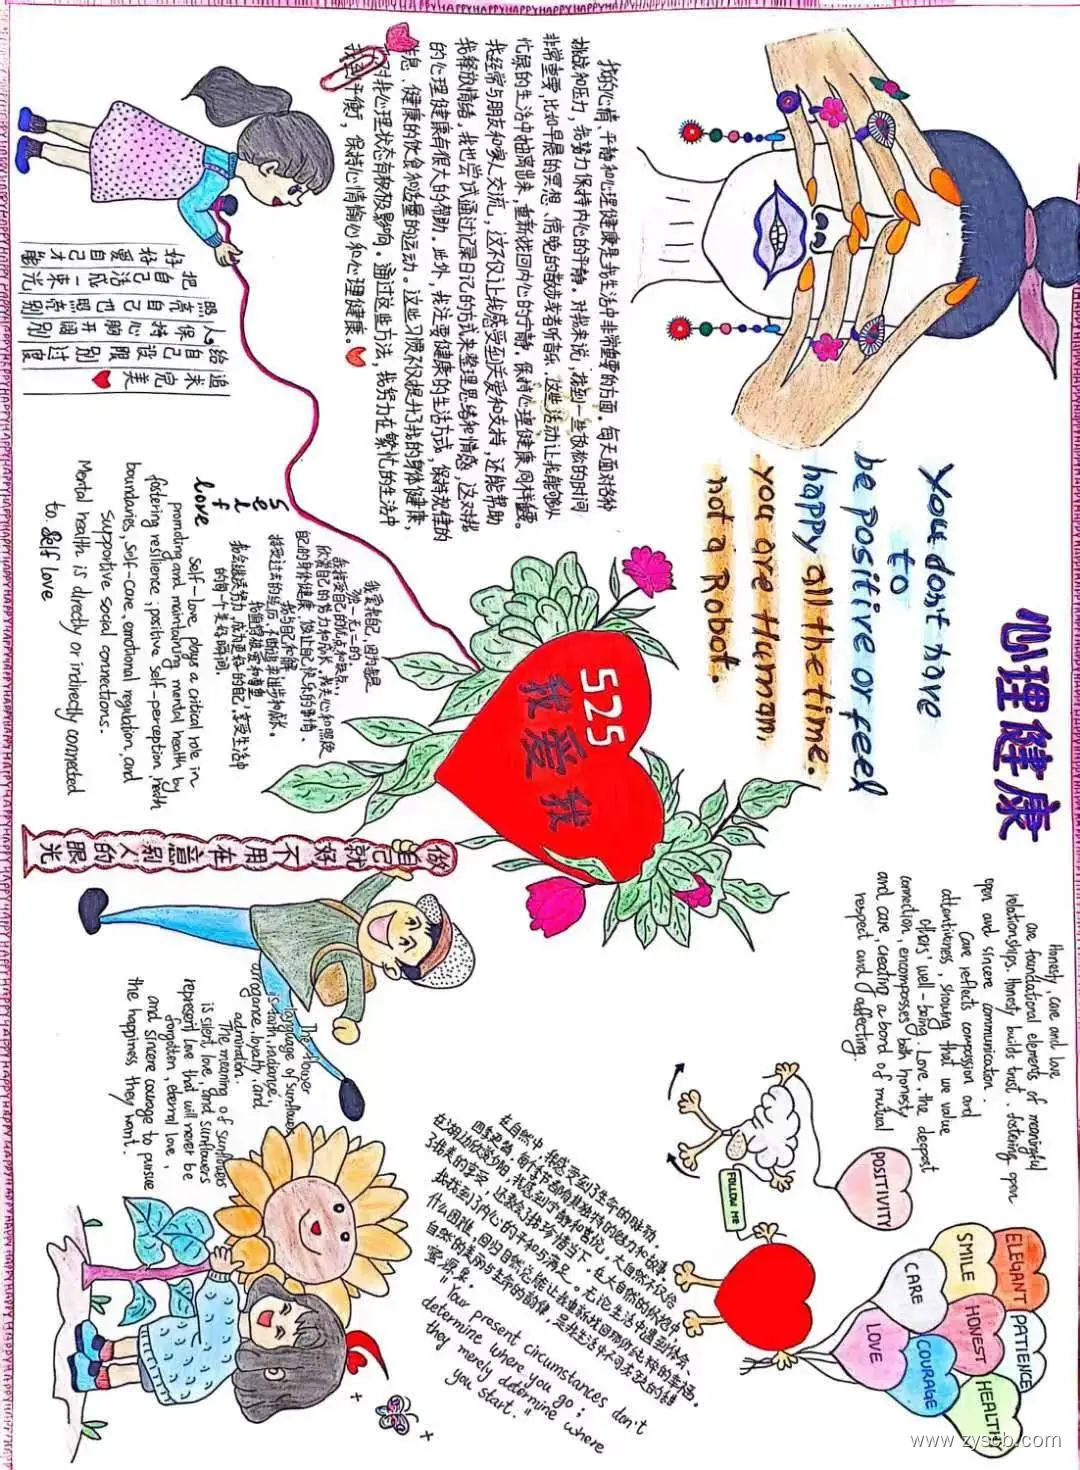 心理健康
You don't have
to
be positive or feel
happy all the time.
you are Humnam
not a Robot.
我的心情、平静和心理健康是我生活中非常重要的方面。每天面对各种
挑战和压力，我努力保持内心的平静。对我来说，找到一些放松的时间
非常重要，比如早晨的冥想、傍晚的散步或者听音乐。这些活动让我能够从
忙碌的生活中抽离出来，重新找回内心的宁静。保持心理健康同样重要。
我经常与朋友和家人交流，这不仅让我感受到关爱和支持，还能帮助
我释放情绪。我也尝试通过记录日记的方式来整理思绪和情感，这对我
的心理健康有很大的帮助。此外，我注重健康的生活方式，保持规律的
作息、健康的饮食和适量的运动。这些习惯不仅提升了我的身体健康，
对我心理状态有积极影响。通过这些方法，我努力在繁忙的生活中
找到平衡，保持心情愉悦和心理健康。
好好爱自己才能
把自己活成一束光
照亮自己也照亮别
人保持心胸开阔别
给自己设限别过度
追求完美
525
我爱我
Self
love
Self-love plays a critical role in
promoting and maintaining mental health by
fostering resilience, positive self-perception, health
boundaries, self-care, emotional regulation, and
supportive social connections.
Mental health is directly or indirectly connected
to self love
我爱我自己，因为我是
独一无二的。
我接受自己的优点和缺点，
欣赏自己的努力和成长，我关心和照顾
自己的身体健康，做让自己快乐的事情。
我与自己和解，
接受过去的经历，不断追求进步和成长。
我值得被爱和尊重
我会继续努力，成为更好的自己，享受生活中
的每个美好瞬间。
做自己就好不用在意别人的眼光
Honesty, care and love
are foundational elements of meaningful
relationships. Honesty builds trust, fostering open
open and sincere communication.
Care reflects compassion and
attentiveness, showing that we value
others' well-being. Love, the deepest
connection, encompasses both honesty
and care, creating a bond of mutual
respect and affecting.
POSITIVITY
FOLLOW ME
ELEGANT
PATIENCE
SMILE
HONEST
HEALTHY
CARE
COURAGE
LOVE
The flower
language of sunflowers
is faith, radiance,
arrogance, loyalty, and
admiration.
The meaning of sunflowers
is silent love, and sunflowers
represent love that will never be
forgotten, eternal love,
and sincere courage to pursue
the happiness they want.
在自然中，我感受到了生命的脉动。
四季更替，每个季节都有其独特的魅力和故事。
"Your present circumstances don't
determine where you go;
they merely determine where
you start."
www.zyscb.com